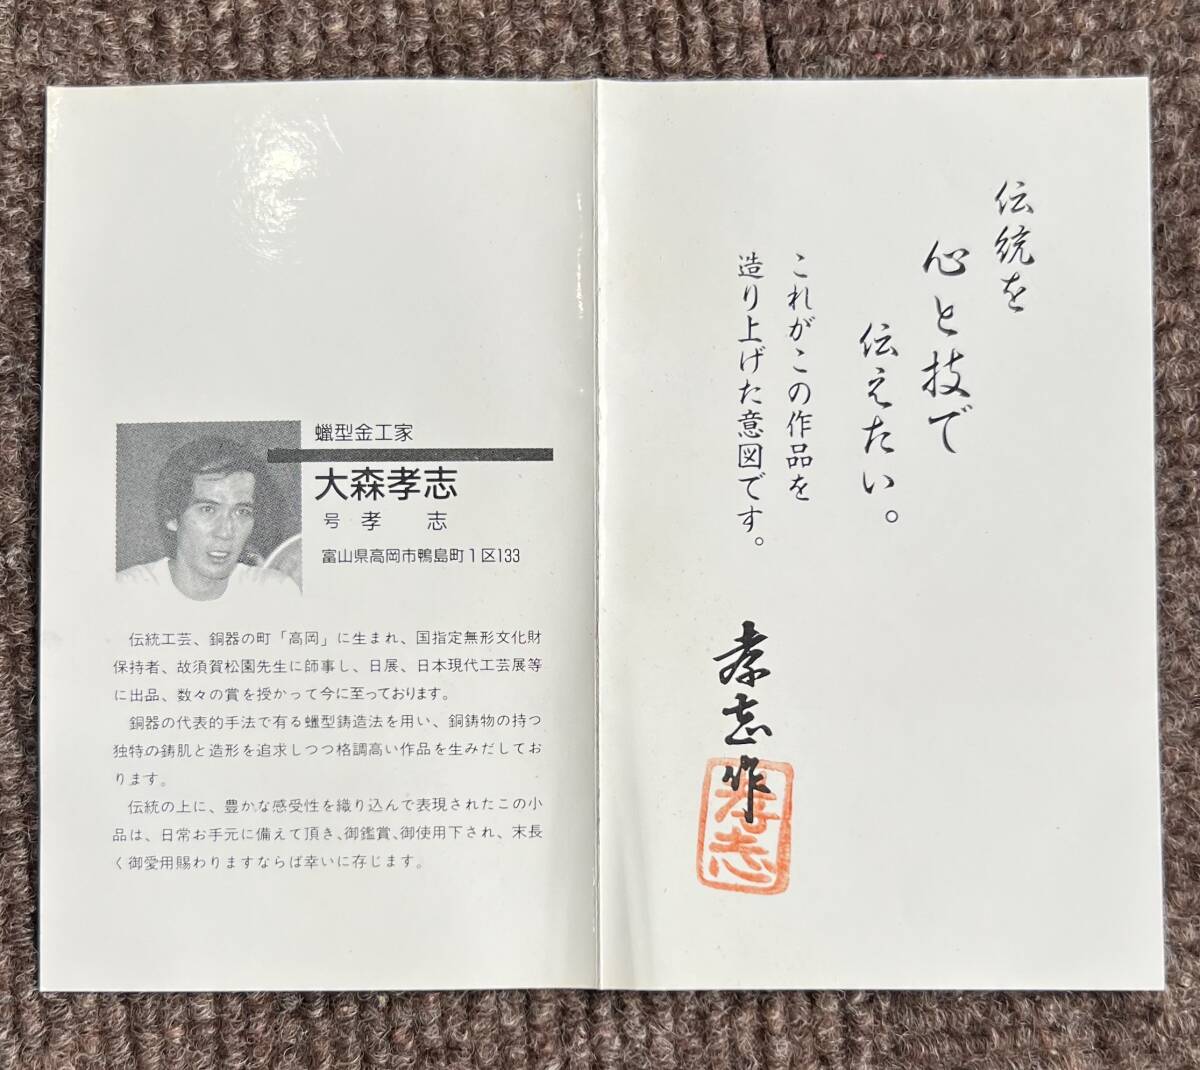 伝統を
心と技で
伝えたい。
これがこの作品を
造り上げた意図です。
孝志作
孝志
蠟型金工家
大森孝志
号 孝 志
富山県高岡市鴨島町1区133
伝統工芸、銅器の町「高岡」に生まれ、国指定無形文化財
保持者、故須賀松園先生に師事し、日展、日本現代工芸展等
に出品、数々の賞を授かって今に至っております。
銅器の代表的手法で有る蠟型鋳造法を用い、銅鋳物の持つ
独特の鋳肌と造形を追求しつつ格調高い作品を生みだしてお
ります。
伝統の上に、豊かな感受性を織り込んで表現されたこの小
品は、日常お手元に備えて頂き、御鑑賞、御使用下され、末長
く御愛用賜わりますならば幸いに存じます。